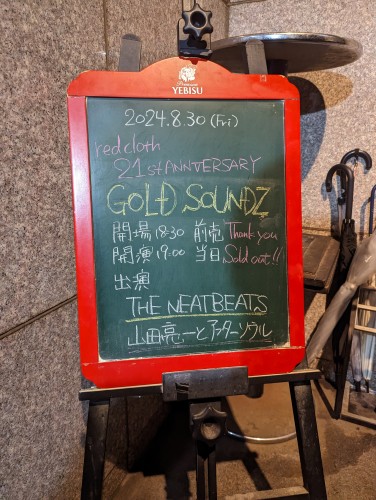 YEBISU
2024.8.30 (Fri)
redcloth
21st ANNVERSARY
GOLD SOUNDZ
開場 18:30 前売 Thank you
開演 19:00 当日 Sold out!!
出演
THE NEATBEATS
山田亮一とアフターソウル